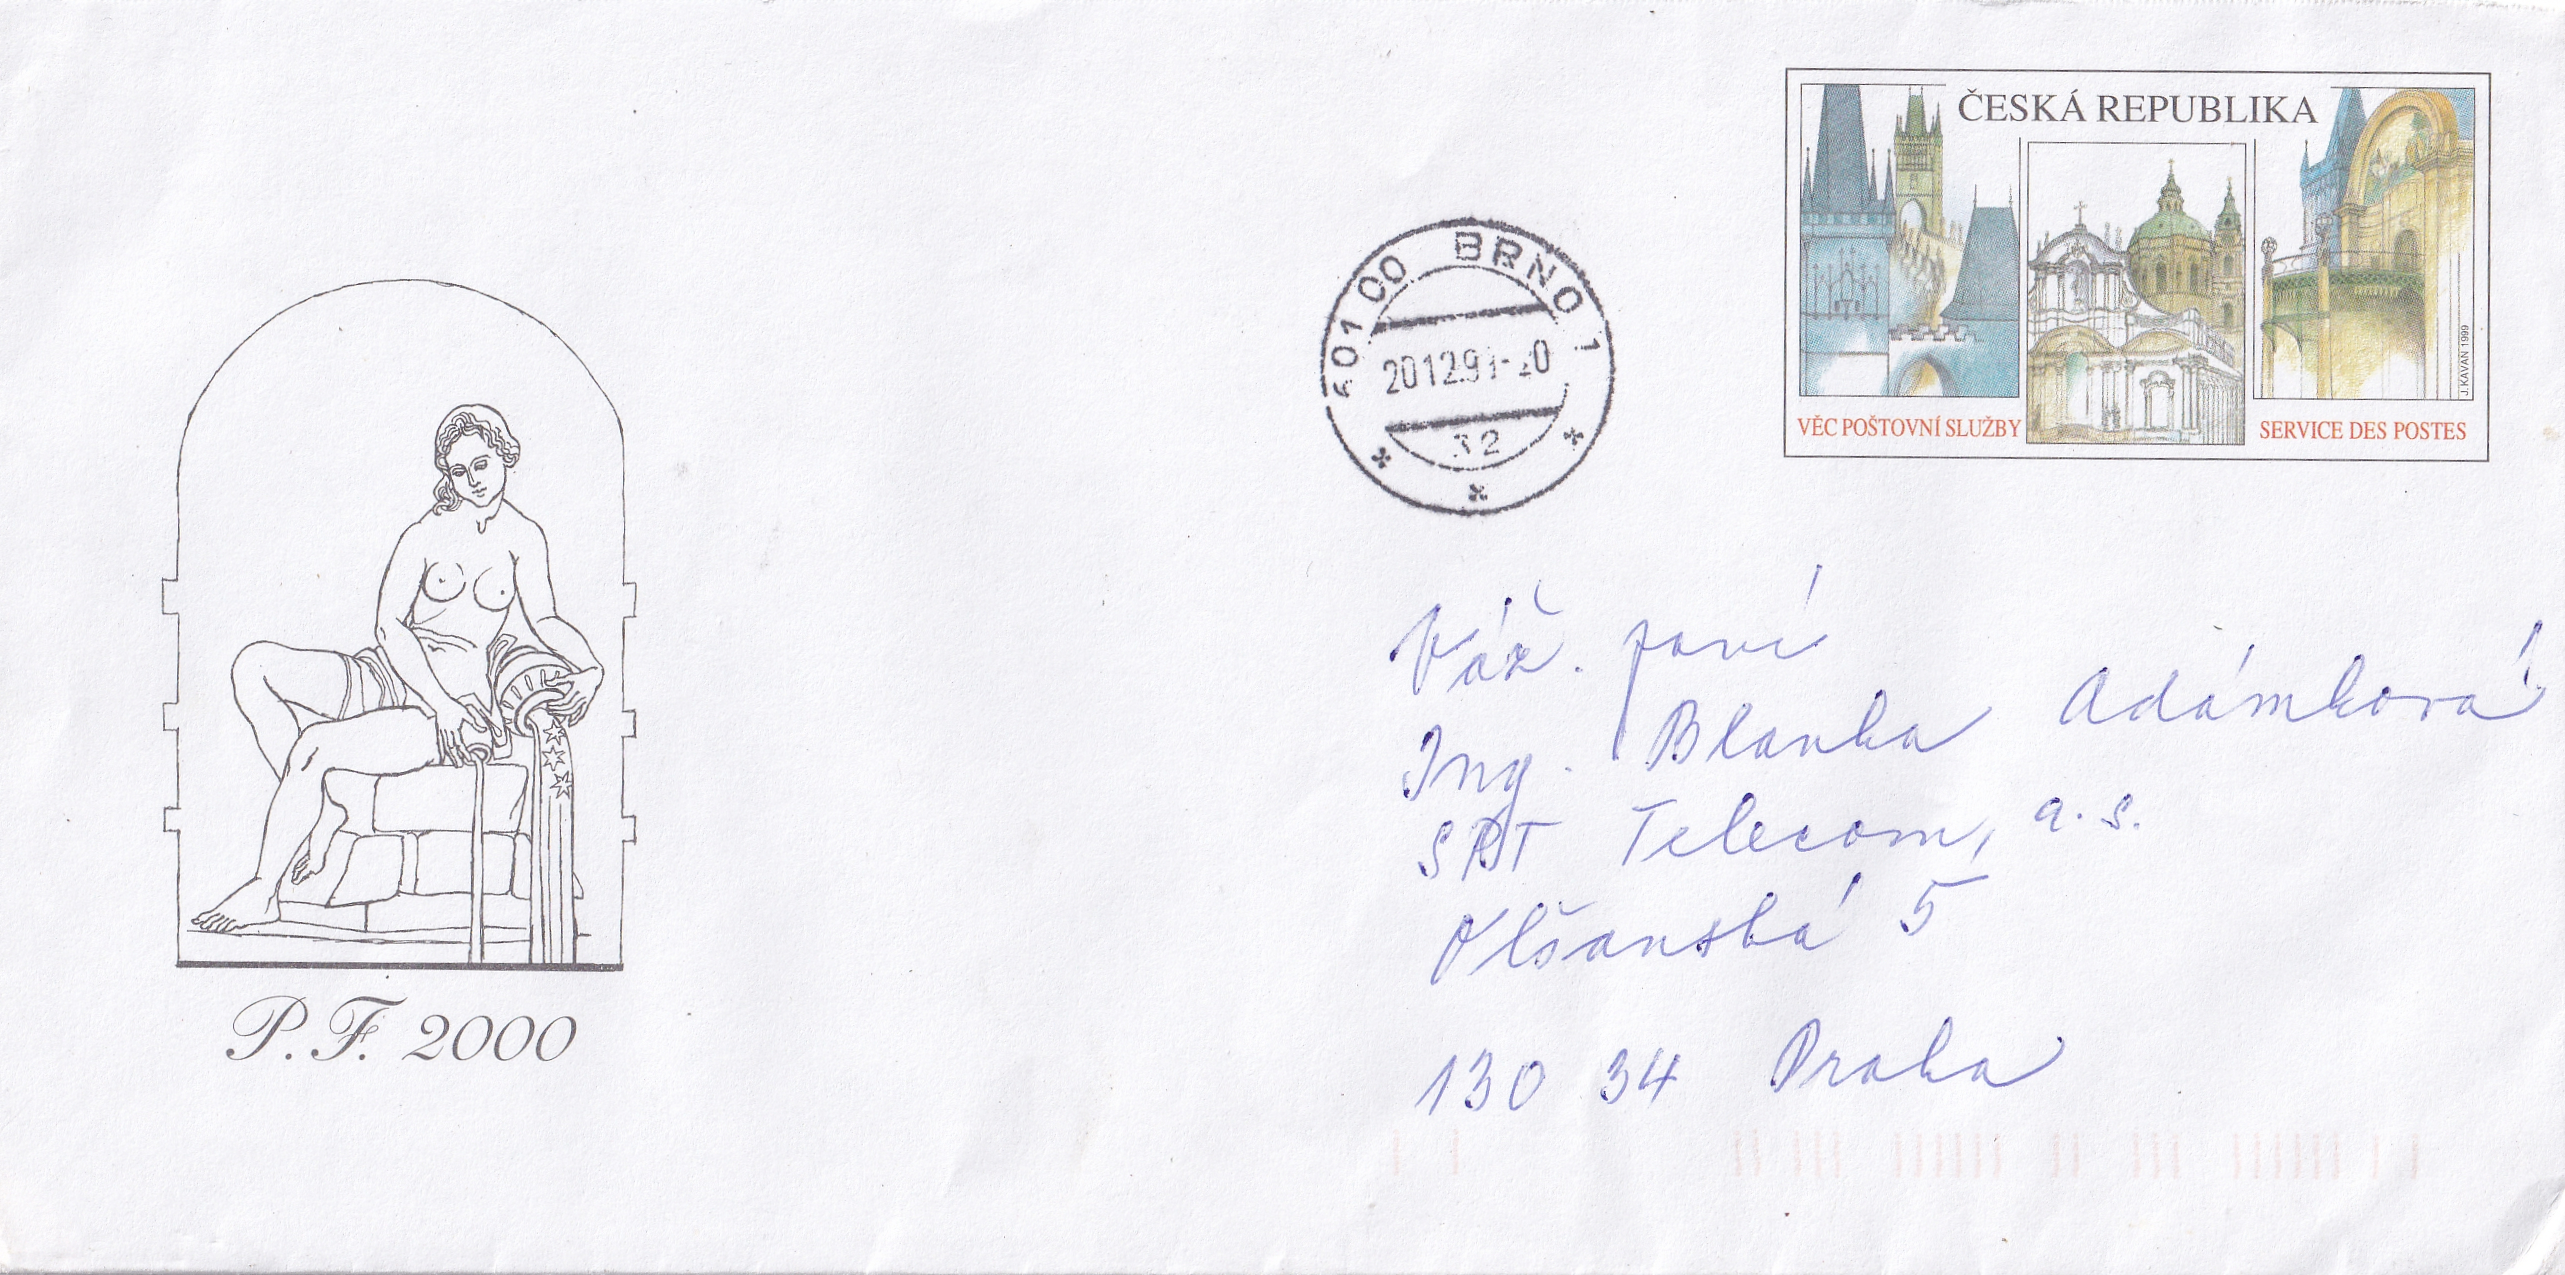 ČESKÁ REPUBLIKA
J. KAVAN 1999
VĚC POŠTOVNÍ SLUŽBY
SERVICE DES POSTES
601 00 BRNO 1
20.12.99-20
32
Váž. paní
Ing. Blanka Adámková
SPT Telecom, a.s.
Olšanská 5
130 34 Praha
P.F. 2000